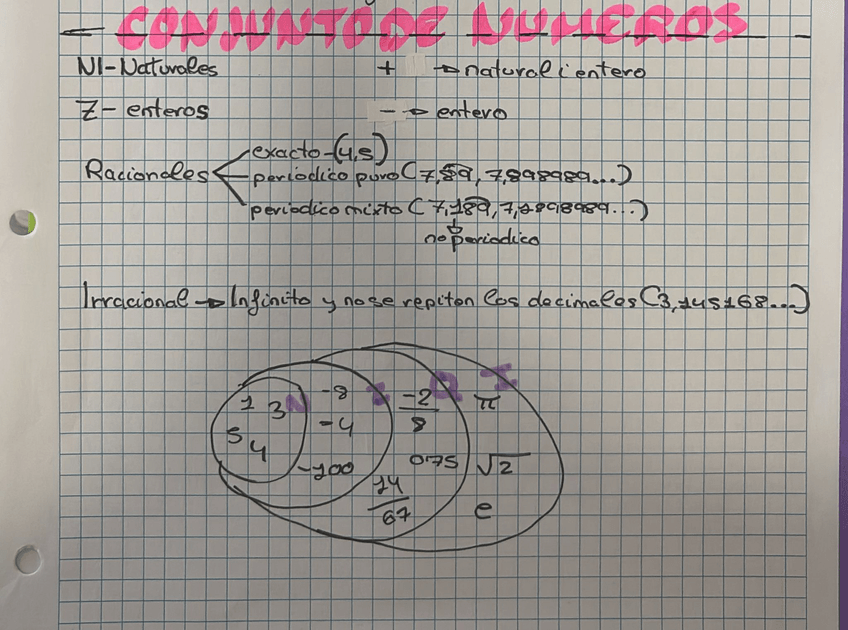 CONJUNTO DE NUMEROS
N-Naturales + → natural i entero
Z- enteros - → entero
Racionales
exacto-(4,5)
periodico puro (7,89, 7,898989...)
periodico mixto (7,189, 7,1898989...)
no periodico
Irracional → Infinito y no se repiten los decimales (3,145168...)
N Z Q I
1 3 -8 -2/8 π
5 4 -4
-100 075 √2
14/67 e